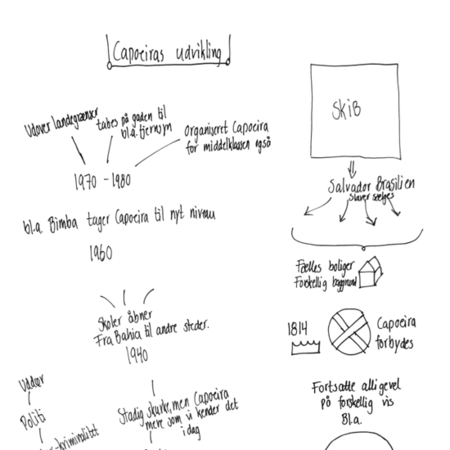 Capoeiras udvikling
Udover landegrænser
tabes på gaden til
bl.a. fjernsyn
Organiseret Capoeira
for middelklassen også
1970 - 1980
bl.a. Bimba tager Capoeira til nyt niveau
1960
Skoler åbner
Fra Bahia til andre steder.
1940
Stadig skurke, men Capoeira
mere som vi kender det
i dag
Politi
SKIB
Salvador Brasilien
Slaver sælges
Fælles boliger
Forskellig baggrund
1814
Capoeira
forbydes
Fortsatte alligevel
på forskellig vis
Bl.a.